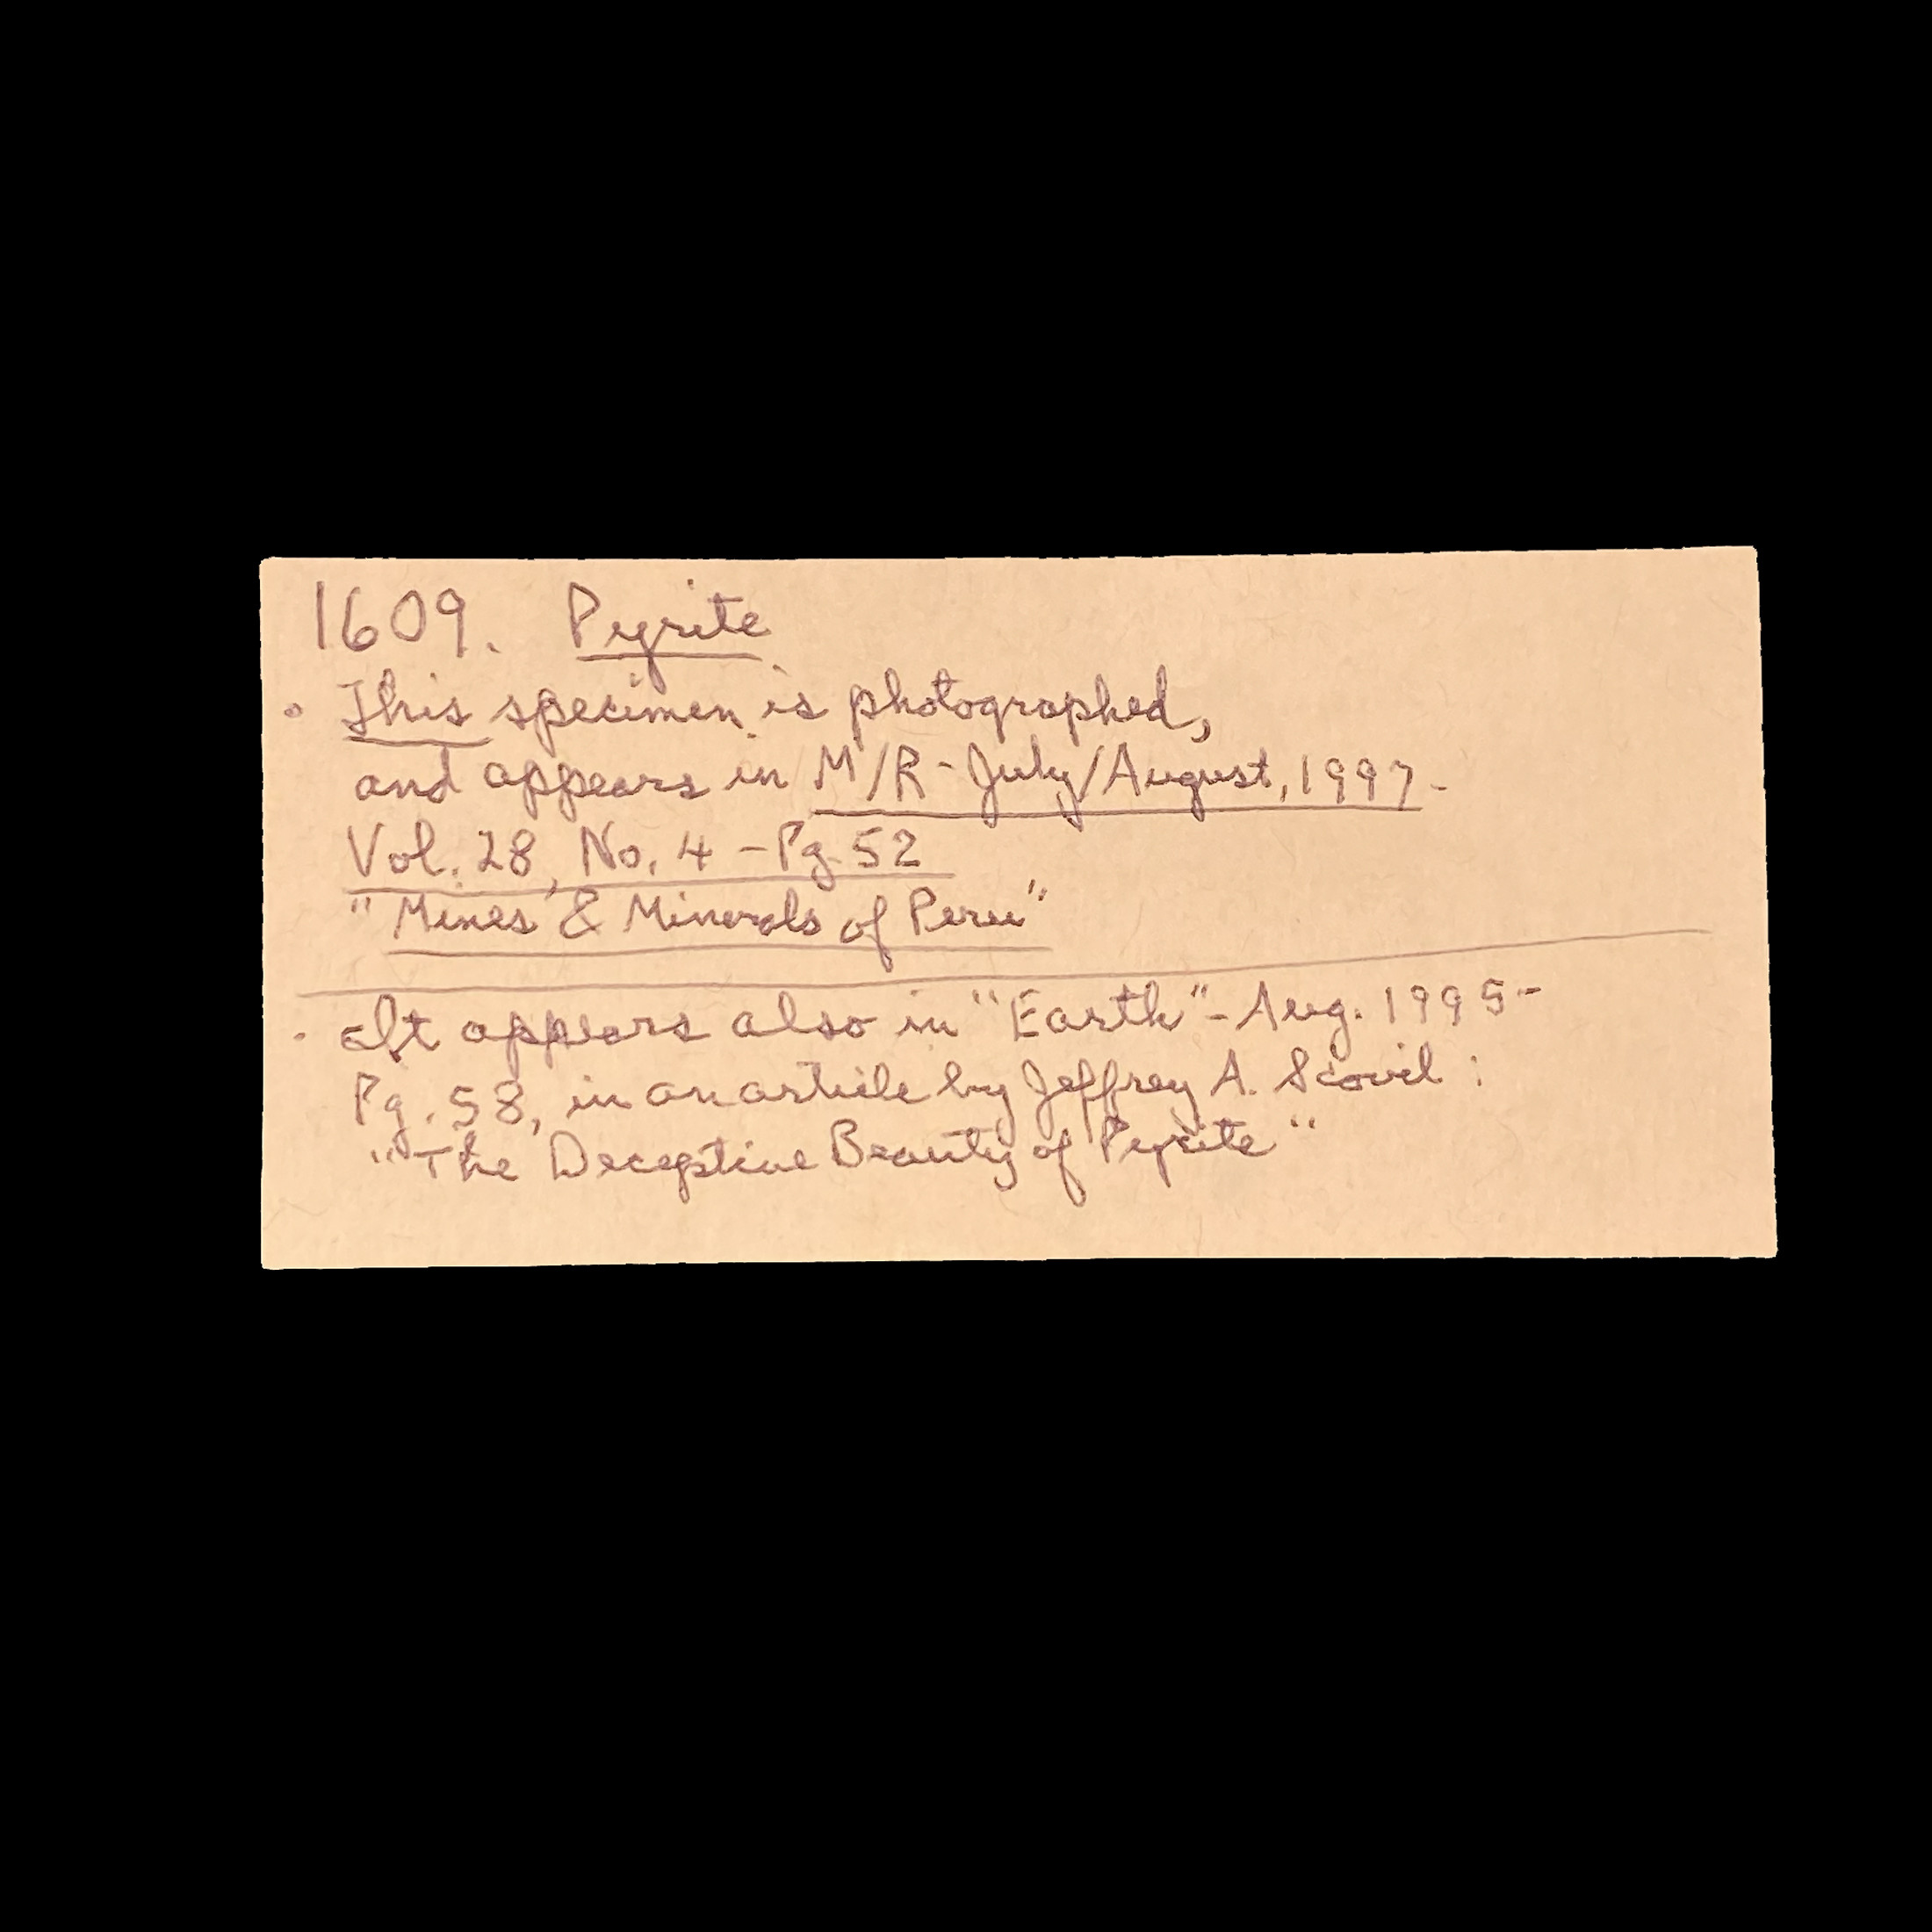 1609. Pyrite
• This specimen is photographed,
and appears in M/R - July/August, 1997-
Vol. 28, No. 4 - Pg. 52
"Mines & Minerals of Peru"
• It appears also in "Earth" - Aug. 1995-
Pg. 58, in an article by Jeffrey A. Scovil:
"The Deceptive Beauty of Pyrite"